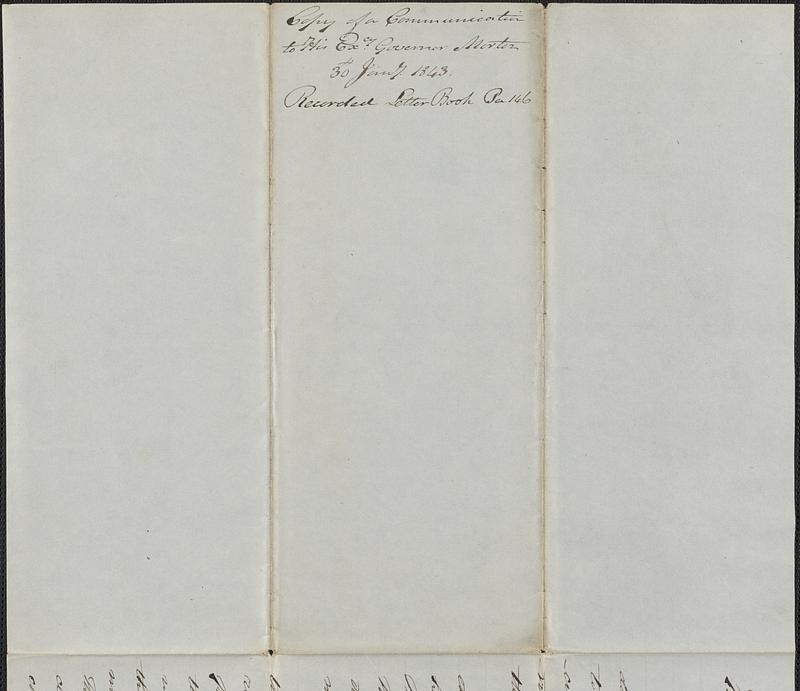 Copy of a Communication
to His Excy Governor Morton
30th Jany 1843.
Recorded Letter Book Pa 146